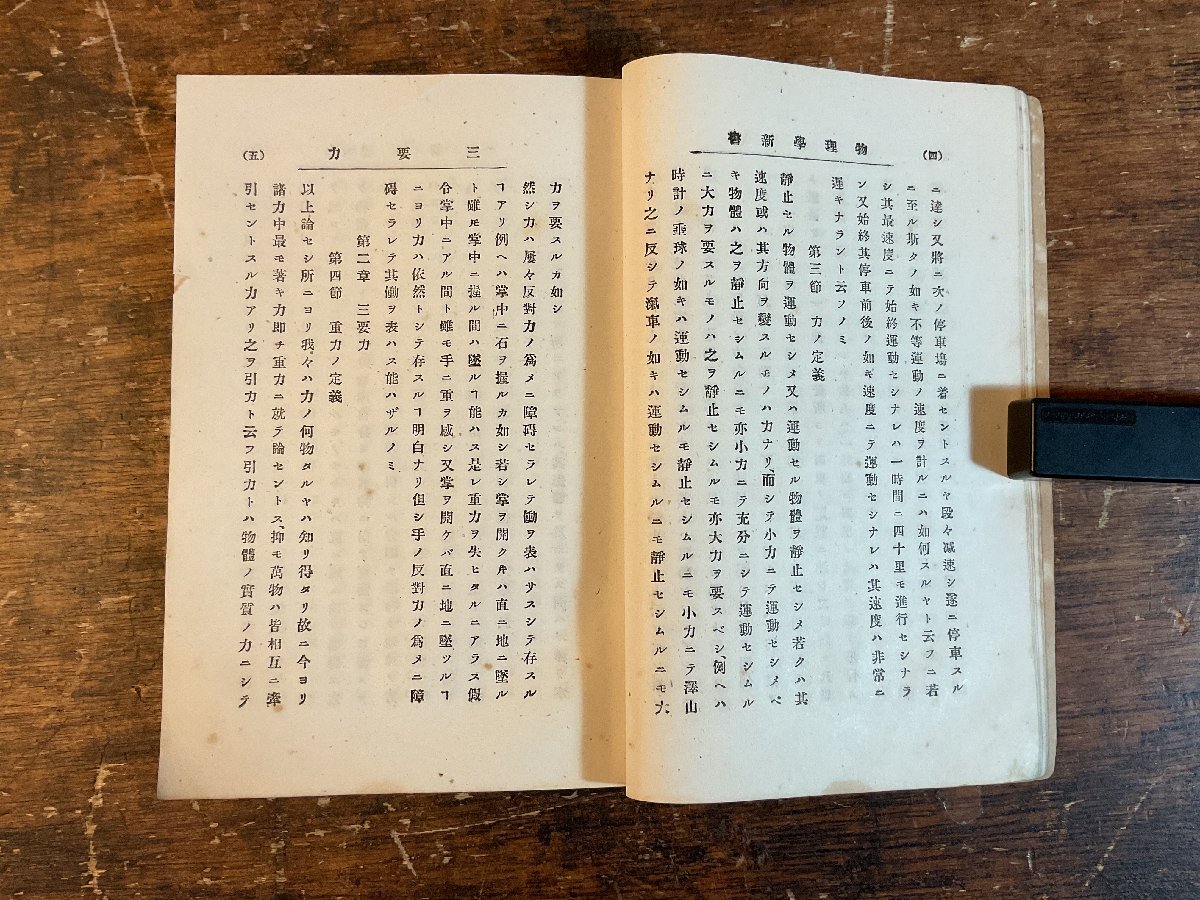 (四)
物理學新書
ニ達シ又將ニ次ノ停車塲ニ着セントスルヤ段々减速シ遂ニ停車スル
ニ至ル斯クノ如キ不等運動ノ速度ヲ計ルニハ如何スルヤト云フニ若
シ其最速度ニテ始終運動セシナレハ一時間ニ四十里モ進行セシナラ
ン又始終其停車前後ノ如ギ速度ニテ運動セシナレハ其速度ハ非常ニ
遲キナラント云フノミ
第三節 力ノ定義
靜止セル物體ヲ運動セシメ又ハ運動セル物體ヲ靜止セシメ若クハ其
速度或ハ其方向ヲ變スルモノハ力ナリ、而シテ小力ニテ運動セシメベ
キ物體ハ之ヲ靜止セシムルニモ亦小力ニテ充分ニシテ運動セシムル
ニ大力ヲ要スルモノハ之ヲ靜止セシムルモ亦大力ヲ要スベシ、例ヘハ
時計ノ乖球ノ如キハ運動セシムルモ靜止セシムルニモ小力ニテ澤山
ナリ之ニ反シテ滊車ノ如キハ運動セシムルニモ靜止セシムルニモ大
三要力
(五)
力ヲ要スルカ如シ
然シ力ハ屢々反對力ノ爲メニ障碍セラレテ働ヲ表ハサスシテ存スル
ヿアリ例ヘハ掌中ニ石ヲ握ルカ如シ若シ掌ヲ開クキハ直ニ地ニ墜ル
ト雖モ掌中ニ握ル間ハ墜ルヿ能ハス是レ重力ヲ失ヒタルニアラス假
令掌中ニアル間ト雖モ手ニ重ヲ感シ又掌ヲ開ケバ直ニ地ニ墜ツルヿ
ニヨリ力ハ依然トシテ存スルヿ明白ナリ但シ手ノ反對力ノ爲メニ障
碍セラレテ其働ヲ表ハス能ハザルノミ
第二章 三要力
第四節 重力ノ定義
以上論セシ所ニヨリ我々ハ力ノ何物タルヤハ知リ得タリ故ニ今ヨリ
諸力中最モ著キ力即チ重力ニ就テ論セントス、抑モ萬物ハ皆相互ニ牽
引セントスル力アリ之ヲ引力ト云フ引力トハ物體ノ實質ノ力ニシテ